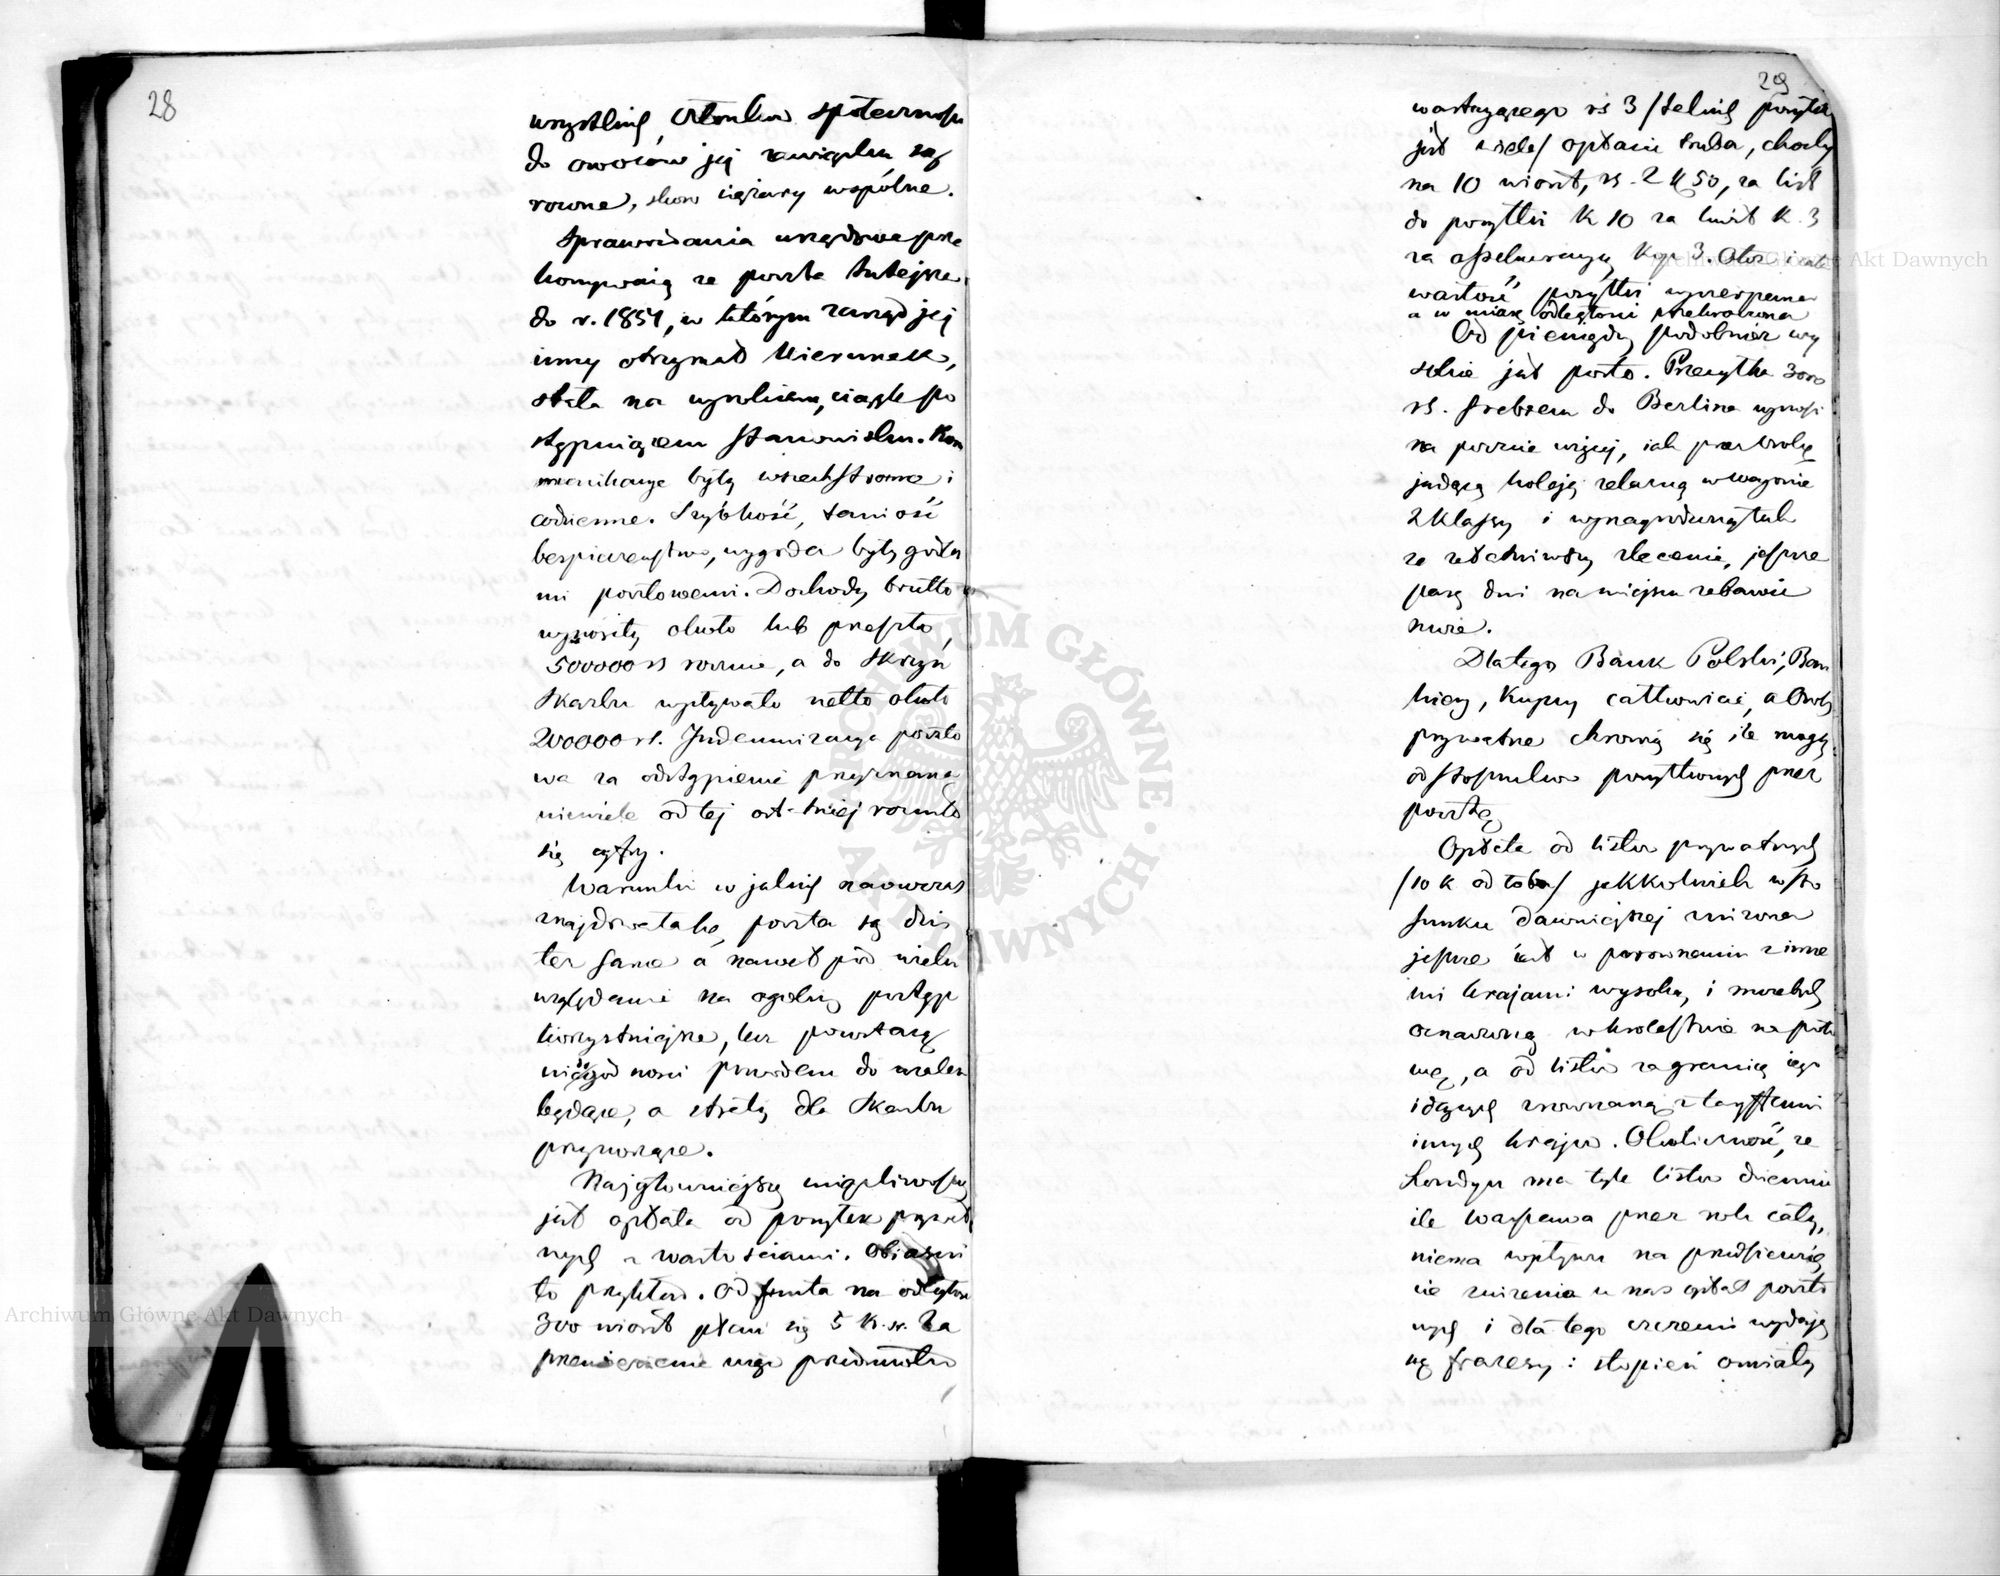 28
wszystkich członków społeczności
do owoców jej związku są
rowne, skoro ciężary wspólne.
Sprawozdania urzędowe prze
konywaią ze poczta tutejsza
do r. 1851, w którym zarząd jej
inny otrzymał kierunek,
stała na wysokiem, ciągle po
stępuiącem stanowisku. Kom
munikacye były wszechstronne i
codzienne. Szybkość, taniość
bezpieczeństwo, wygoda były godła
mi pocztowemi. Dochody brutto
wynosiły około lub przeszło
500000 rs rocznie, a do Skrzyń
Skarbu wpływało netto około
200000 rs. Indemnizacya poczto
wa za odstąpienie przyznana
niewiele od tej ostatniej rownała
się cyfry.
Warunki w jakich naowczas
znajdowała się poczta są dziś
też same a nawet pod wielu
względami na ogólny postęp
korzystniejsze, lecz powstały
niedogodności powodem do zaleceń
będące, a straty dla Skarbu
przynoszące.
Najgłowniejszą uciążliwością
jest opłata od posyłek prywat
nych z wartościami. Obiaśni
to przykład. Od funta na odległość
300 wiorst płaci się 5 K. sr. Za
przeniesienie więc przedmiotu
29
wartszącego rs 3 /takich posyłek
jest wiele/ opłacić trzeba, choćby
na 10 wiorst, rs. 2 K 50, za list
do posyłki K 10 za kwit K. 3
za assekuracyą Kop 3. Otoż i cała
wartość posyłki wyczerpana
a w miarę odległości przekroczona
Od pieniędzy podobnież wy
sokie jest porto. Przesyłka 3000
rs. srebrem do Berlina wynosi
na poczcie więcej, iak przez osobę
jadącą koleją zelazną w wagonie
2 klassy i wynagrodzony tak
za załatwiony zlecenie, jeszcze
parę dni na miejscu zabawić
może.
Dlatego Bank Polski, Ban
kierzy, Kupcy całkowicie, a Osoby
prywatne chronią się ile mogą
od stosunków posyłkowych przez
pocztę
Opłata od listów prywatnych
/10 K od łota/ jakkolwiek w sto
sunku dawniejszej zniżona
jeszcze iest w porownaniu z inne
mi krajami wysoka, i mozeby
oznaczoną w krolestwie na poło
wę, a od listów zagranicę iego
idących zrownaną z taryffami
innych kraiów. Okoliczność, ze
Londyn ma tyle listów dziennie
ile Warszawa przez rok cały,
niema wpływu na przedsięwzię
cie zniżenia u nas opłat poczto
wych i dla tego szczeremi wydają
się frazesy: stopień oswiaty
Archiwum Główne Akt Dawnych
Archiwum Główne Akt Dawnych
ARCHIWUM GŁÓWNE AKT DAWNYCH